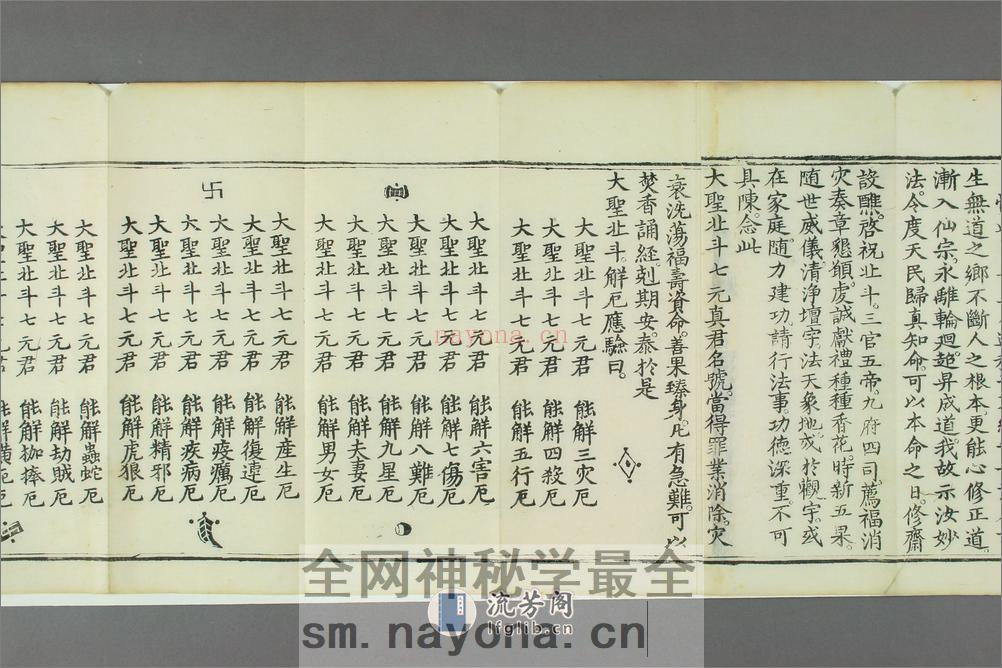 生無道之鄉不斷人之根本。更能心修正道。
漸入仙宗。永離輪迴。超昇成道。我故示汝妙
法。令度天民歸真知命。可以本命之日。修齋
設醮。啓祝北斗。三官五帝。九府四司。薦福消
灾奏章懇願。虔誠獻禮種種香花。時新五果。
随世威儀清淨壇宇。法天象地。或於觀宇。或
在家庭。随力建功。請行法事。功德深重。不可
具陳。念此
大聖北斗七元真君名號。當得罪業消除。灾
衰洗蕩福壽資命。善果臻身。凡有急難。可以
焚香誦經。剋期安泰於是
大聖北斗。解厄應驗曰。
大聖北斗七元君 能解三灾厄
大聖北斗七元君 能解四殺厄
大聖北斗七元君 能解五行厄
大聖北斗七元君 能解六害厄
大聖北斗七元君 能解七傷厄
大聖北斗七元君 能解八難厄
大聖北斗七元君 能解九星厄
大聖北斗七元君 能解夫妻厄
大聖北斗七元君 能解男女厄
大聖北斗七元君 能解産生厄
大聖北斗七元君 能解復連厄
大聖北斗七元君 能解疫癘厄
大聖北斗七元君 能解疾病厄
大聖北斗七元君 能解精邪厄
大聖北斗七元君 能解虎狼厄
卍
大聖北斗七元君 能解蟲蛇厄
大聖北斗七元君 能解劫賊厄
大聖北斗七元君 能解枷棒厄
nayona.cn
全网神秘学最全
流芳阁
lfglib.cn
sm.nayona.cn